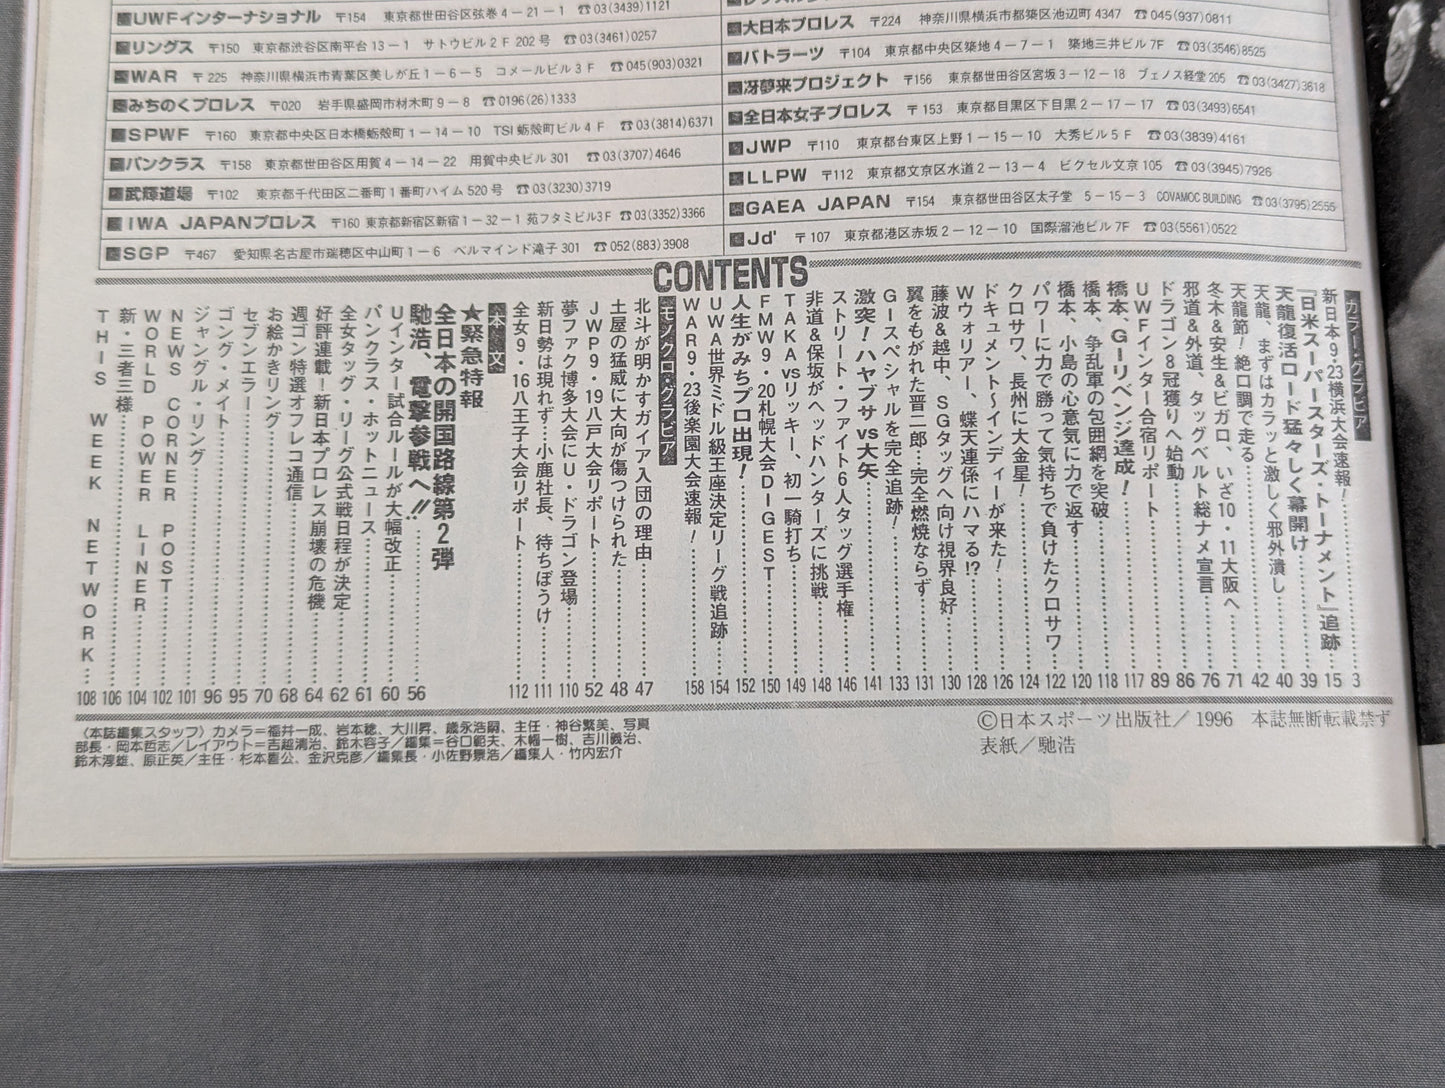 UWFインターナショナル 〒154 東京都世田谷区弦巻4-21-1 ☎03(3439)1121
リングス 〒150 東京都渋谷区南平台13-1 サトウビル2F 202号 ☎03(3461)0257
WAR 〒225 神奈川県横浜市青葉区美しが丘1-6-5 コメールビル3F ☎045(903)0321
みちのくプロレス 〒020 岩手県盛岡市材木町9-8 ☎0196(26)1333
SPWF 〒160 東京都中央区日本橋蛎殻町1-14-10 TSI蛎殻町ビル4F ☎03(3814)6371
パンクラス 〒158 東京都世田谷区用賀4-14-22 用賀中央ビル301 ☎03(3707)4646
武輝道場 〒102 東京都千代田区二番町1番町ハイム520号 ☎03(3230)3719
IWA JAPANプロレス 〒160 東京都新宿区新宿1-32-1 苑フタミビル3F ☎03(3352)3366
SGP 〒467 愛知県名古屋市瑞穂区中山町1-6 ベルマインド滝子301 ☎052(883)3908
大日本プロレス 〒224 神奈川県横浜市都築区池辺町4347 ☎045(937)0811
バトラーツ 〒104 東京都中央区築地4-7-1 築地三井ビル7F ☎03(3546)8525
冴夢来プロジェクト 〒156 東京都世田谷区宮坂3-12-18 ブェノス経堂205 ☎03(3427)3618
全日本女子プロレス 〒153 東京都目黒区下目黒2-17-17 ☎03(3493)6541
JWP 〒110 東京都台東区上野1-15-10 大秀ビル5F ☎03(3839)4161
LLPW 〒112 東京都文京区水道2-13-4 ビクセル文京105 ☎03(3945)7926
GAEA JAPAN 〒154 東京都世田谷区太子堂 5-15-3 COVAMOC BUILDING ☎03(3795)2555
Jd' 〒107 東京都港区赤坂2-12-10 国際溜池ビル7F ☎03(5561)0522
CONTENTS
カラー・グラビア
新日本9・23横浜大会速報!……3
『日米スーパースターズ・トーナメント』追跡……15
天龍復活ロード猛々しく幕開け……39
天龍、まずはカラッと激しく邪外潰し……40
天龍節!絶口調で走る……42
冬木&安生&ビガロ、いざ10・11大阪へ……71
邪道&外道、タッグベルト総ナメ宣言……76
ドラゴン8冠獲りへ始動……86
UWFインター合宿リポート……89
橋本、G-リベンジ達成!……117
橋本、争乱軍の包囲網を突破……118
橋本、小島の心意気に力で返す……120
パワーに力で勝って気持ちで負けたクロサワ……122
クロサワ、長州に大金星!……124
ドキュメント〜インディーが来た!……126
Wウォリアー、蝶天連係にハマる!?……128
藤波&越中、SGタッグへ向け視界良好……130
翼をもがれた晋二郎…完全燃焼ならず……131
Gースペシャルを完全追跡!……133
激突!ハヤブサvs大矢……141
ストリート・ファイト6人タッグ選手権……146
非道&保坂がヘッドハンターズに挑戦……148
TAKAvsリッキー、初一騎打ち……149
FMW9・20札幌大会DIGEST……150
人生がみちプロ出現!……152
UWA世界ミドル級王座決定リーグ戦追跡……154
WAR9・23後楽園大会速報!……158
モノクロ・グラビア
北斗が明かすガイア入団の理由……47
土屋の猛威に大向が傷つけられた……48
JWP9・19八戸大会リポート……52
夢ファク博多大会にU・ドラゴン登場……110
新日勢は現れず…小鹿社長、待ちぼうけ……111
全女9・16八王子大会リポート……112
本文
★緊急特報
全日本の開国路線第2弾
馳浩、電撃参戦へ!!……56
Uインター試合ルールが大幅改正……60
パンクラス・ホットニュース……61
全女タッグ・リーグ公式戦日程が決定……62
好評連載!新日本プロレス崩壊の危機……64
週ゴン特選オフレコ通信……68
お絵かきリング……70
セブンエラー……95
ゴング・メイト……96
ジャングル・リング……101
NEWS CORNER POST……102
WORLD POWER LINER……104
新・三者三様……106
THIS WEEK NETWORK……108
〈本誌編集スタッフ〉カメラ=福井一成、岩本稔、大川昇、歳永浩嗣、主任・神谷繁美、写真
部長・岡本哲志/レイアウト=吉越清治、鈴木容子/編集=谷口範夫、木幡一樹、吉川義治、
鈴木淳雄、原正英/主任・杉本喜公、金沢克彦/編集長・小佐野景浩/編集人・竹内宏介
©日本スポーツ出版社/1996 本誌無断転載禁ず
表紙/馳浩